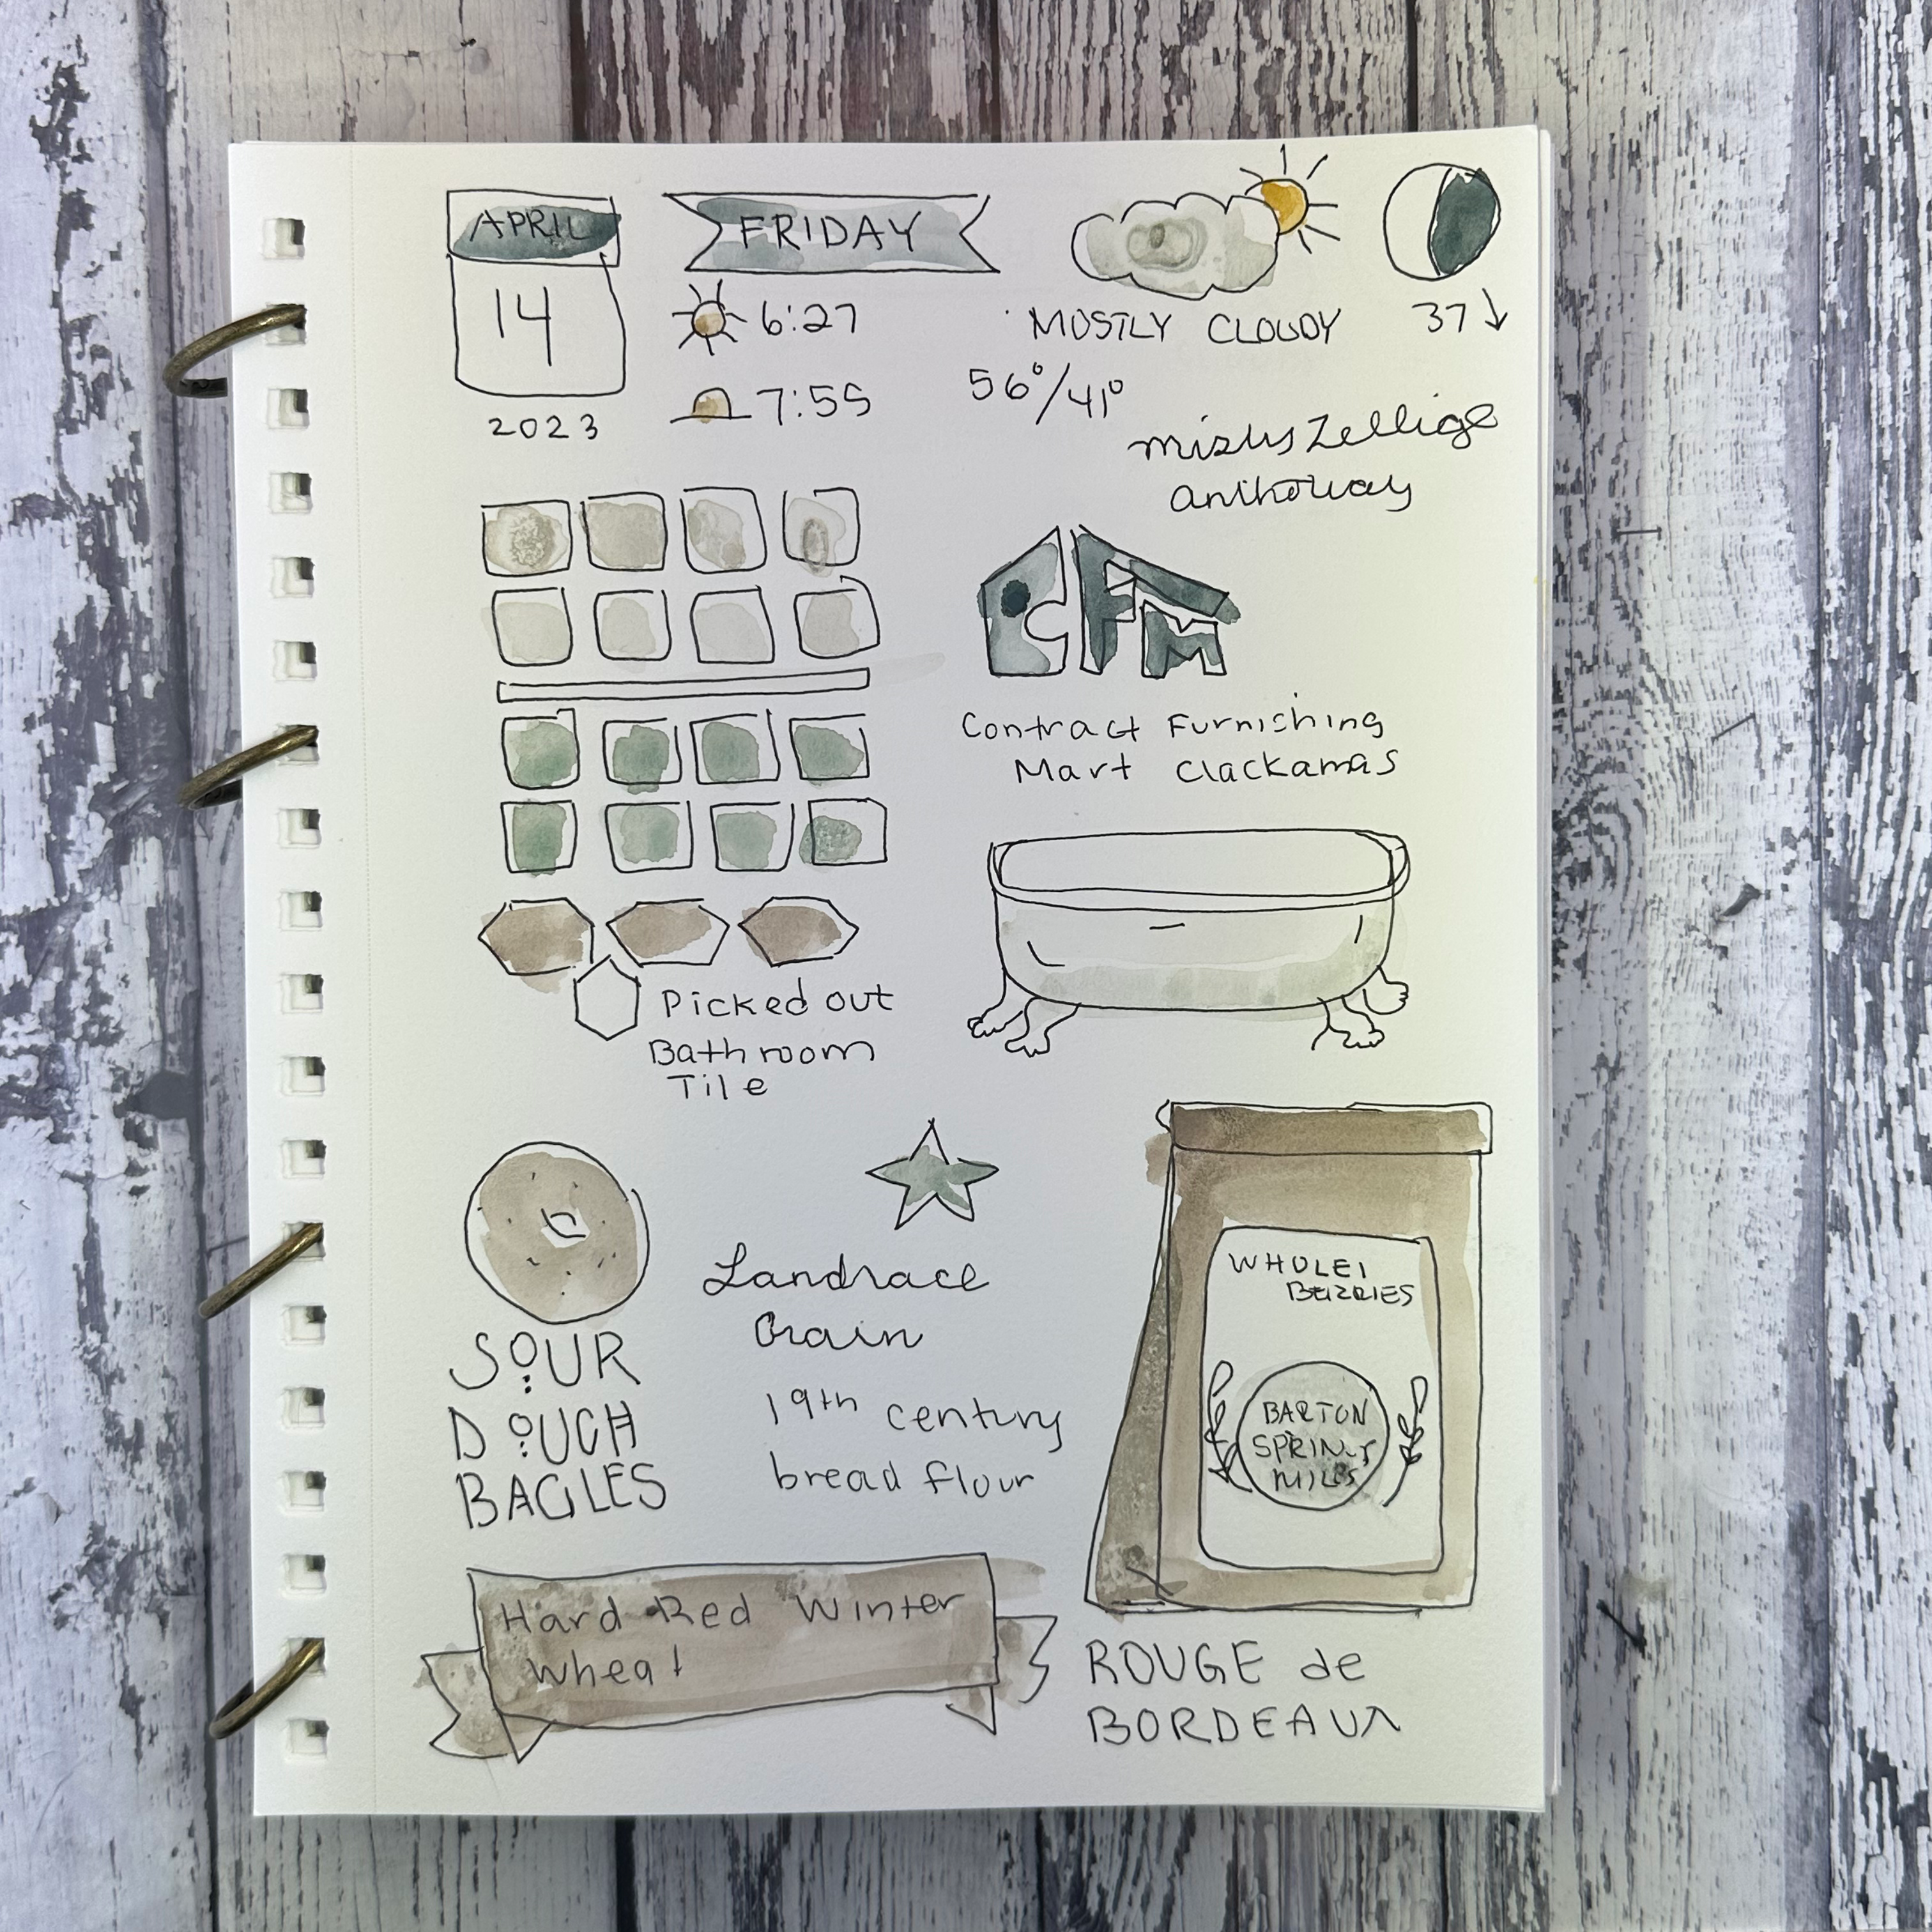 APRIL
14
2023
FRIDAY
6:27
7:55
MOSTLY CLOUDY
56°/41°
37↓
Zellige
CFM
Contract Furnishing
Mart Clackamas
Picked out
Bathroom
Tile
SOUR
DOUGH
BAGLES
Landrace
Grain
19th century
bread flour
WHOLE
BERRIES
BARTON
SPRINGS
MILLS
Hard Red Winter
Wheat
ROUGE de
BORDEAUX